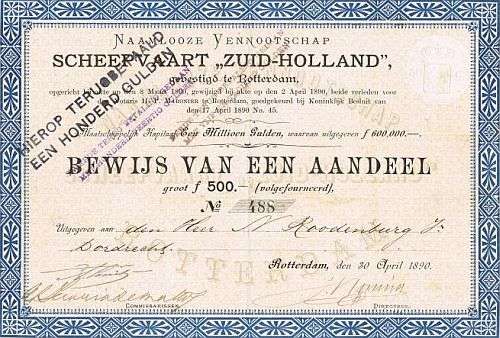 NAAMLOOZE VENNOOTSCHAP
SCHEEPVAART „ZUID-HOLLAND”,
gevestigd te Rotterdam,
opgericht bij akte op den 8 Maart 1890, gewijzigd bij akte op den 2 April 1890, beide verleden voor
Notaris H. A. te Rotterdam, goedgekeurd bij Koninklijk Besluit van
den 17 April 1890 No. 45.
Maatschappelijk Kapitaal Een Millioen Gulden, waarvan uitgegeven ƒ 600,000.—
HIEROP TERUGBETAALD
EEN HONDERD GULDEN
BEWIJS VAN EEN AANDEEL
groot ƒ 500.— (volgefourneerd),
No 488
Uitgegeven aan den Heer N Roodenburg Jr
Dordrecht
Rotterdam, den 30 April 1890.
COMMISSARISSEN.
DIRECTEUR.